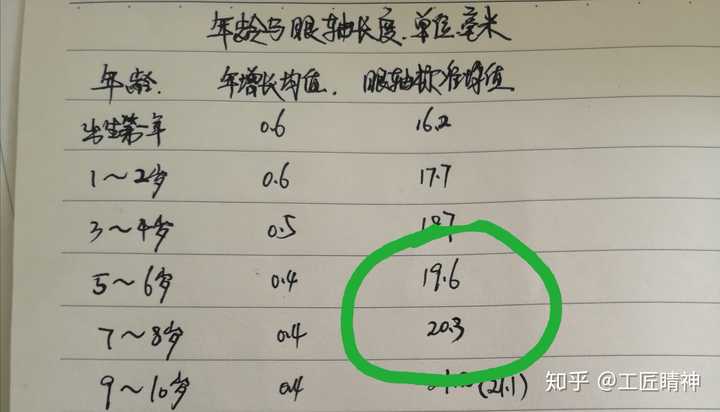 年龄与眼轴长度.单位毫米
年龄. 年增长均值. 眼轴标准均值
出生第一年 0.6 16.2
1～2岁 0.6 17.7
3～4岁 0.5 18.7
5～6岁 0.4 19.6
7～8岁 0.4 20.3
9～10岁 0.4 (21.1)
知乎 @工匠睛神